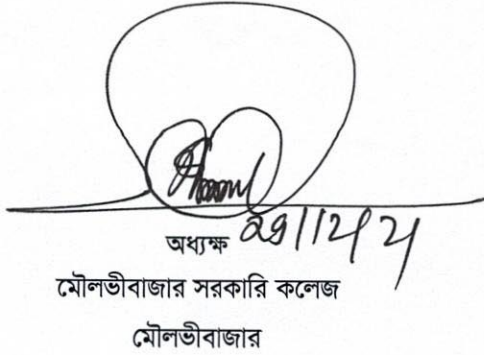 অধ্যক্ষ
মৌলভীবাজার সরকারি কলেজ
মৌলভীবাজার